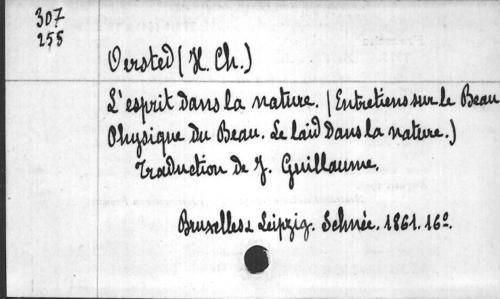 307
258
Oersted (H. Ch.)
L'esprit dans la nature. (Entretiens sur le Beau
Physique du Beau. Le laid dans la nature.)
Traduction de J. Guillaume.
Bruxelles & Leipzig. Schnée. 1861. 16º.